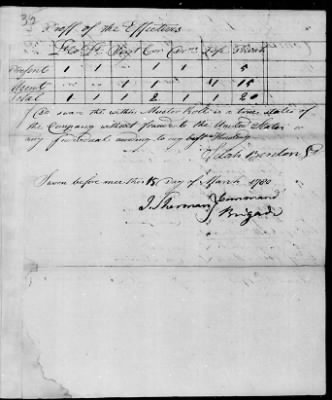 32
Proof of the Effectives
Present 1 1 1 1 1 5
Absent 1 1 1 4 15
Total 1 1 1 2 1 1 20
I do swear the within Muster Roll is a true state of
the Company without fraud to the United States
or any Individual according to my best Knowledge
Selah Benton
Sworn before me this 15 Day of March 1780
I. Sherman Command
Brigade